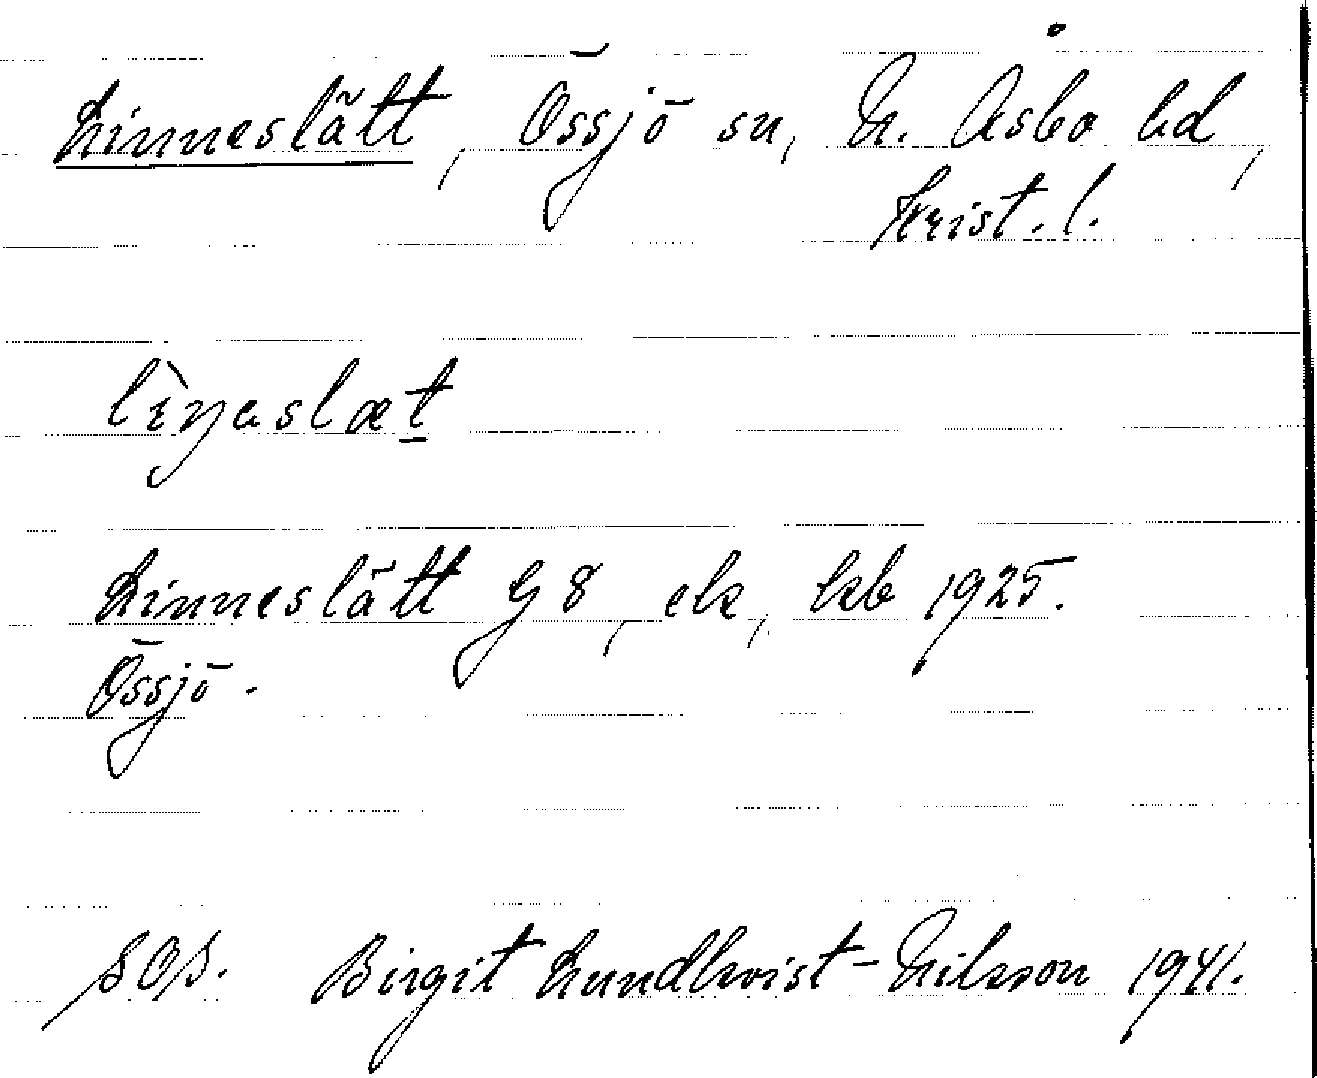 Linneslätt, Össjö sn, N. Åsbo hd,
Krist. l.
Linneslätt G 8, ek, kb 1925.
Össjö.
SOS. Birgit Lundkvist-Nilsson 1941.